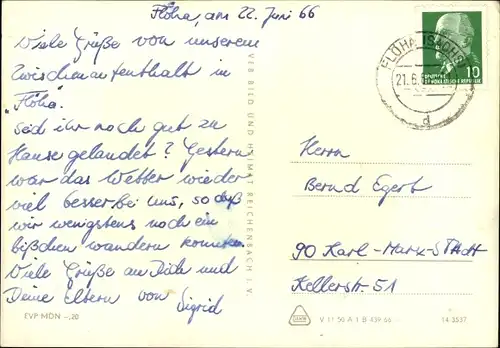 Flöha, am 22. Juni 66
Viele Grüße von unserem
Zwischenaufenthalt in
"Flöha".
Seid ihr noch gut zu
Hause gelandet? Gestern
war das Wetter wieder
viel besser bei uns, so daß
wir wenigstens noch ein
bißchen wandern konnten.
Viele Grüße an Dich und
Deine Eltern von Sigrid
EVP MDN -,20
VEB BILD UND HEIMAT REICHENBACH I. V.
FLÖHA
21.6.
d
10
DEUTSCHE
DEMOKRATISCHE REPUBLIK
Herrn
Bernd Egert
90 Karl-Marx-Stadt
Kellerstr. 51
V 11 50 A 1 B 439 66
14-3537